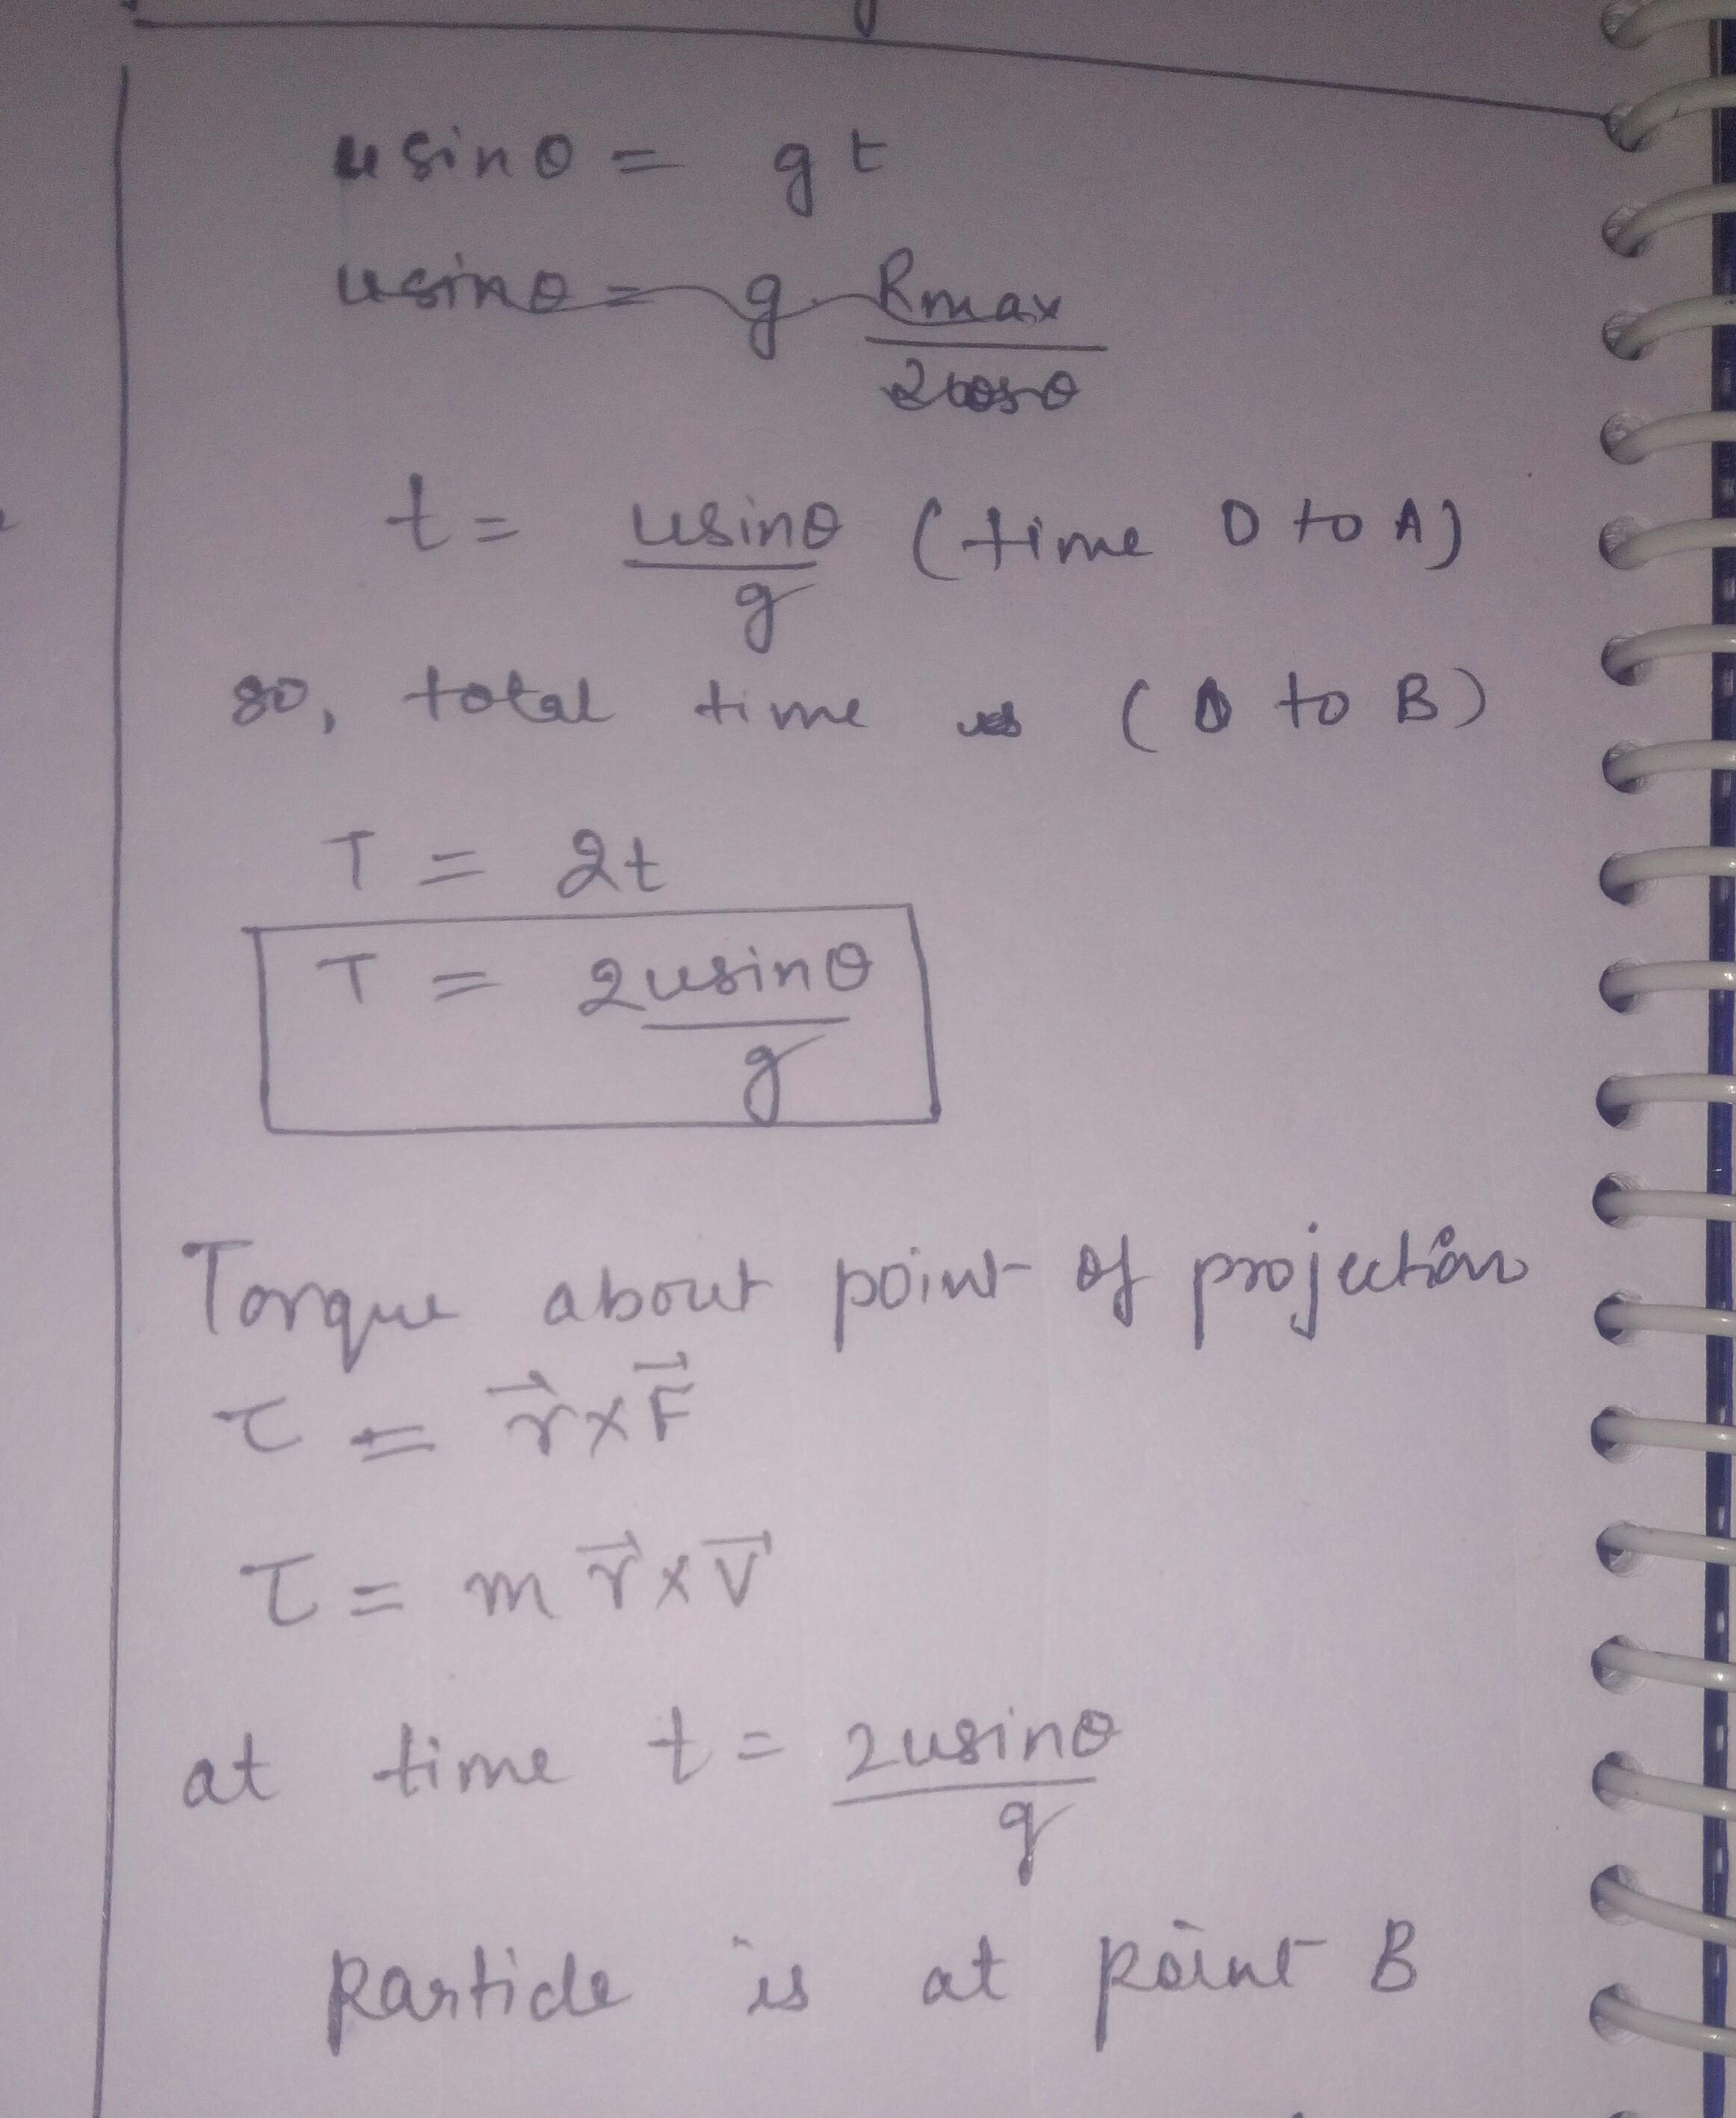 u sinθ = gt
usinθ = g Rmax / 2cosθ
t = usinθ / g (time O to A)
so, total time is (O to B)
T = 2t
T = 2usinθ / g
Torque about point of projection
τ = r⃗ × F⃗
τ = m r⃗ × V⃗
at time t = 2usinθ / g
particle is at point B